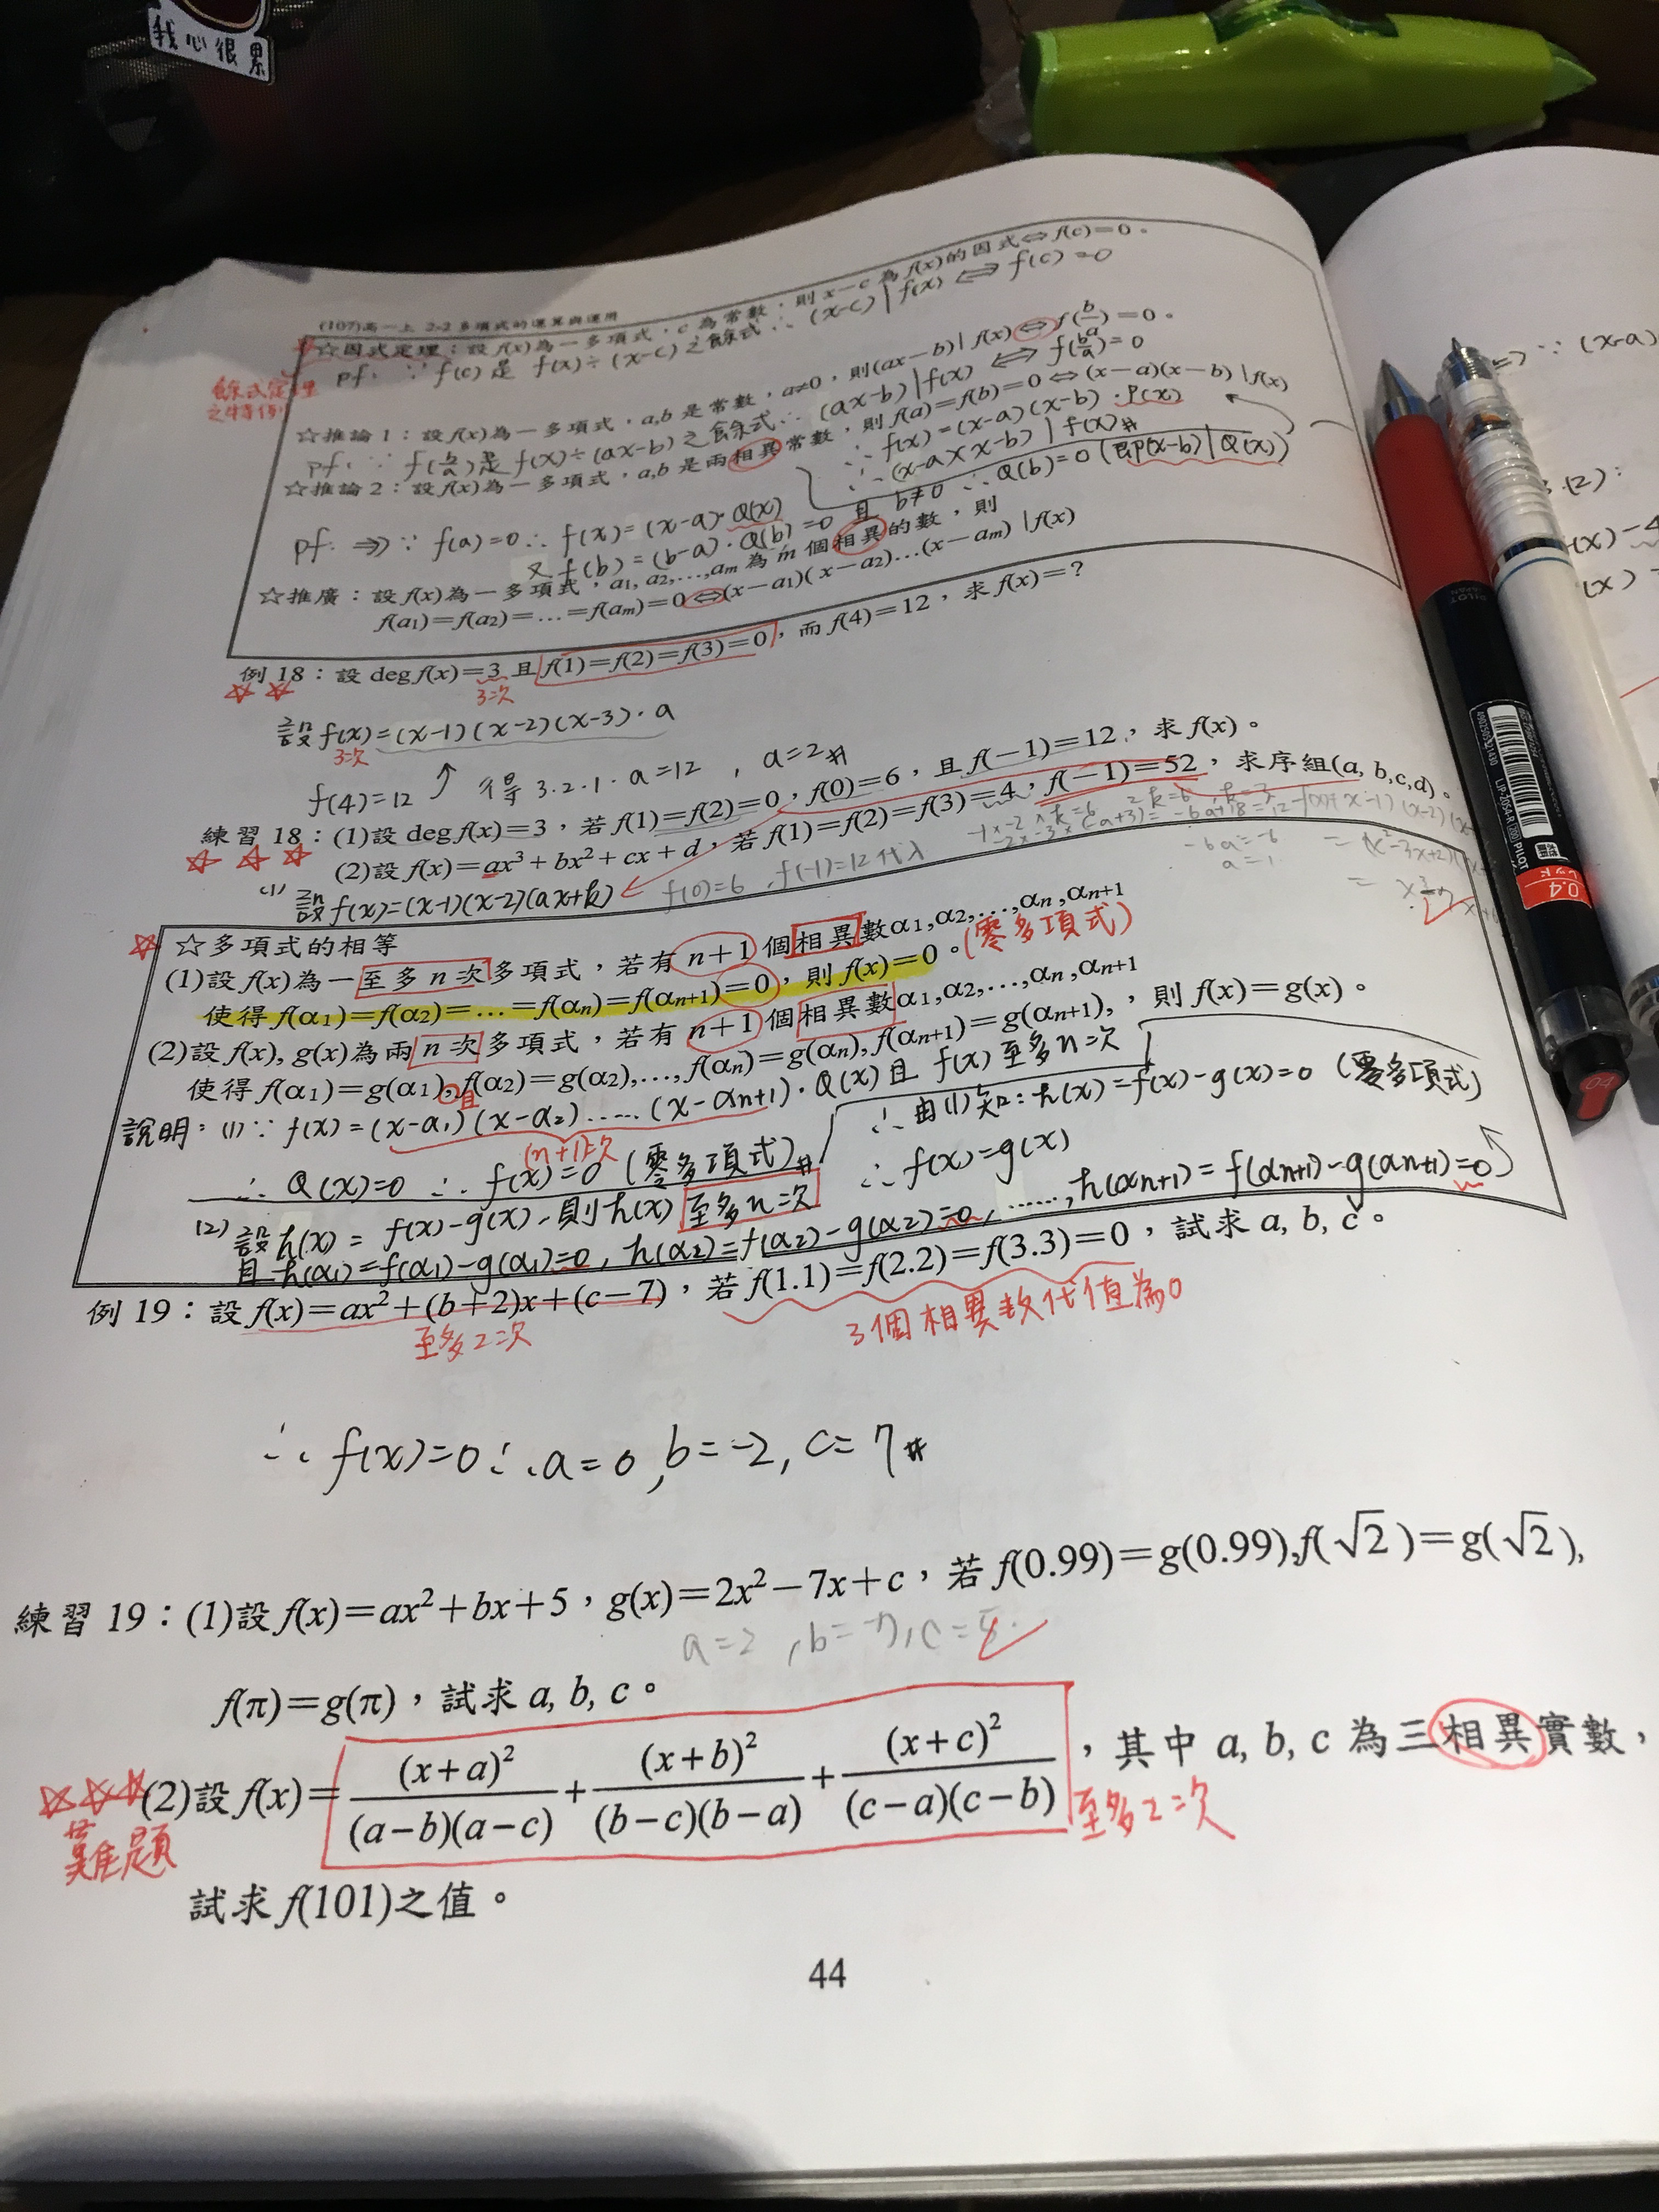 我心很累
(107)高一上 2-2 多項式的運算與運用
☆因式定理：設 f(x)為一多項式，c 為常數，則 x－c 為 f(x)的因式⇔f(c)=0。
pf: ∵ f(c) 是 f(x)÷(x-c) 之餘式 ∴ (x-c)|f(x) ⇔ f(c)=0
餘式定理
之特例
☆推論 1：設 f(x)為一多項式，a,b 是常數，a≠0，則(ax－b)|f(x)⇔f(b/a)=0。
pf: ∵ f(b/a)是 f(x)÷(ax-b) 之餘式 ∴ (ax-b)|f(x) ⇔ f(b/a)=0
☆推論 2：設 f(x)為一多項式，a,b 是兩相異常數，則 f(a)=f(b)=0⇔(x－a)(x－b)|f(x)
pf: ⇒) ∵ f(a)=0 ∴ f(x)=(x-a)·Q(x)
又 f(b)=(b-a)·Q(b)=0 且 b≠0 ∴ Q(b)=0 (即(x-b)|Q(x))
∴ f(x)=(x-a)(x-b)·P(x)
∴ (x-a)(x-b)|f(x)#
☆推廣：設 f(x)為一多項式，a1, a2,…,am 為 m 個相異的數，則
f(a1)=f(a2)=…=f(am)=0⇔(x－a1)(x－a2)…(x－am)|f(x)
例 18：設 deg f(x)=3 且 f(1)=f(2)=f(3)=0，而 f(4)=12，求 f(x)=?
3次
設 f(x)=(x-1)(x-2)(x-3)·a
3次
f(4)=12 ↗ 得 3·2·1·a=12 , a=2#
練習 18：(1)設 deg f(x)=3，若 f(1)=f(2)=0，f(0)=6，且 f(－1)=12，求 f(x)。
(2)設 f(x)=ax³＋bx²＋cx＋d，若 f(1)=f(2)=f(3)=4，f(－1)=52，求序組(a, b,c,d)。
(1) 設 f(x)=(x-1)(x-2)(ax+k)
f(0)=6 , f(-1)=12 代入
-6a=-6
a=1
☆多項式的相等
(1)設 f(x)為一至多 n 次多項式，若有 n＋1 個相異數α1,α2,…,αn ,αn+1
使得 f(α1)=f(α2)=…=f(αn)=f(αn+1)=0，則 f(x)=0。(零多項式)
(2)設 f(x), g(x)為兩 n 次多項式，若有 n＋1 個相異數α1,α2,…,αn ,αn+1
使得 f(α1)=g(α1), f(α2)=g(α2),…, f(αn)=g(αn), f(αn+1)=g(αn+1),，則 f(x)=g(x)。
且
說明：(1) ∵ f(x)=(x-α1)(x-α2)……(x-αn+1)·Q(x) 且 f(x) 至多n次
(n+1)次
∴ Q(x)=0 ∴ f(x)=0 (零多項式)#
(2) 設 h(x)= f(x)-g(x), 則 h(x) 至多n次
且 h(α1)=f(α1)-g(α1)=0, h(α2)=f(α2)-g(α2)=0, ……, h(αn+1)=f(αn+1)-g(αn+1)=0
∴ 由(1)知：h(x)=f(x)-g(x)=0 (零多項式)
∴ f(x)=g(x)
例 19：設 f(x)=ax²＋(b＋2)x＋(c－7)，若 f(1.1)=f(2.2)=f(3.3)=0，試求 a, b, c。
至多2次
3個相異數代值為0
∴ f(x)=0 ∴ a=0, b=-2, c=7#
練習 19：(1)設 f(x)=ax²＋bx＋5，g(x)=2x²－7x＋c，若 f(0.99)=g(0.99),f(√2)=g(√2),
a=2 , b=-7, c=5.
f(π)=g(π)，試求 a, b, c。
(2)設 f(x)=(x+a)²/(a－b)(a－c)＋(x+b)²/(b－c)(b－a)＋(x+c)²/(c－a)(c－b)，其中 a, b, c 為三相異實數，
至多2次
難題
試求 f(101)之值。
44
PILOT
JAPAN
LIP-20S4-R(200) PILOT
0.4
レッド
04
∵ (x-a)